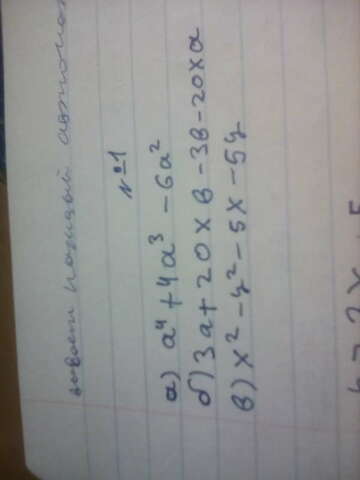 №1
а) a⁴ + 4a³ - 6a²
б) 3a + 20xв - 3в - 20xa
в) x² - y² - 5x - 5y